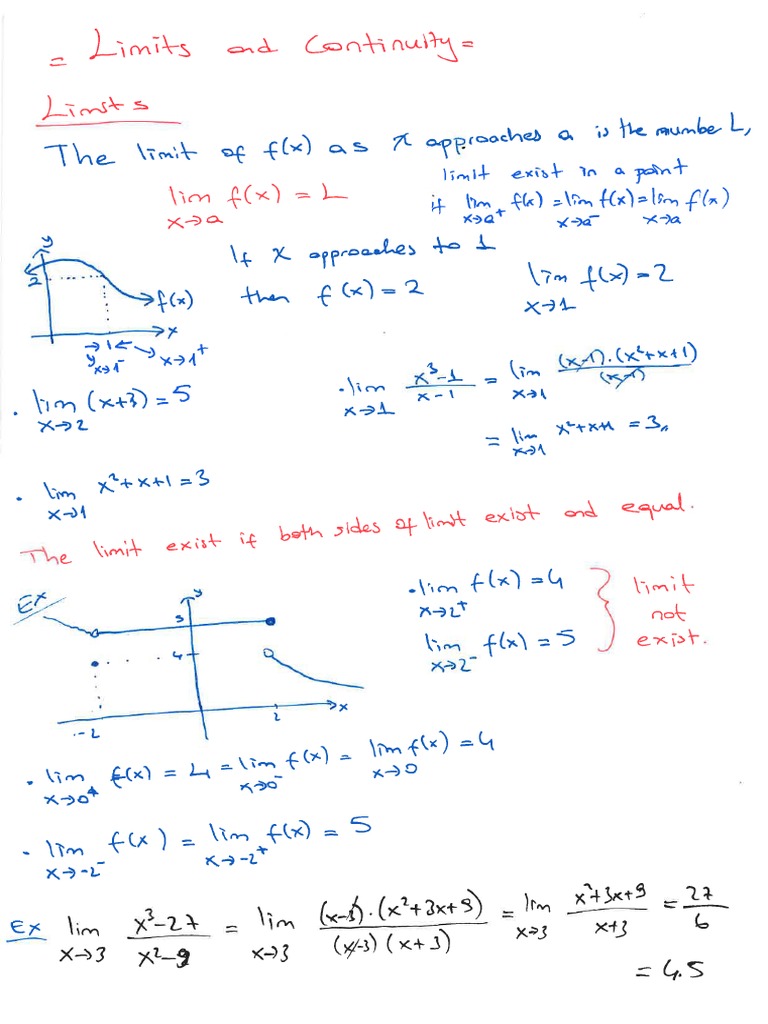 = Limits and Continuity =
Limits
The limit of f(x) as x approaches a is the number L,
lim f(x) = L
x→a
limit exist in a point
if lim f(x) = lim f(x) = lim f(x)
x→a⁺ x→a⁻ x→a
y
2
f(x)
x
→ 1 ←
x→1⁻ x→1⁺
If x approaches to 1
then f(x) = 2
lim f(x) = 2
x→1
. lim (x+3) = 5
x→2
. lim x³-1 / x-1 = lim (x-1).(x²+x+1) / (x-1)
x→1 x→1
= lim x²+x+1 = 3
x→1
. lim x²+x+1 = 3
x→1
The limit exist if both sides of limit exist and equal.
Ex
y
5
4
-2
2
x
. lim f(x) = 4
x→2⁺
lim f(x) = 5
x→2⁻
limit
not
exist.
. lim f(x) = 4 = lim f(x) = lim f(x) = 4
x→0⁺ x→0⁻ x→0
. lim f(x) = lim f(x) = 5
x→-2⁻ x→-2⁺
Ex lim x³-27 / x²-9 = lim (x-3).(x²+3x+9) / (x-3)(x+3) = lim x²+3x+9 / x+3 = 27 / 6
x→3 x→3 x→3
= 4.5